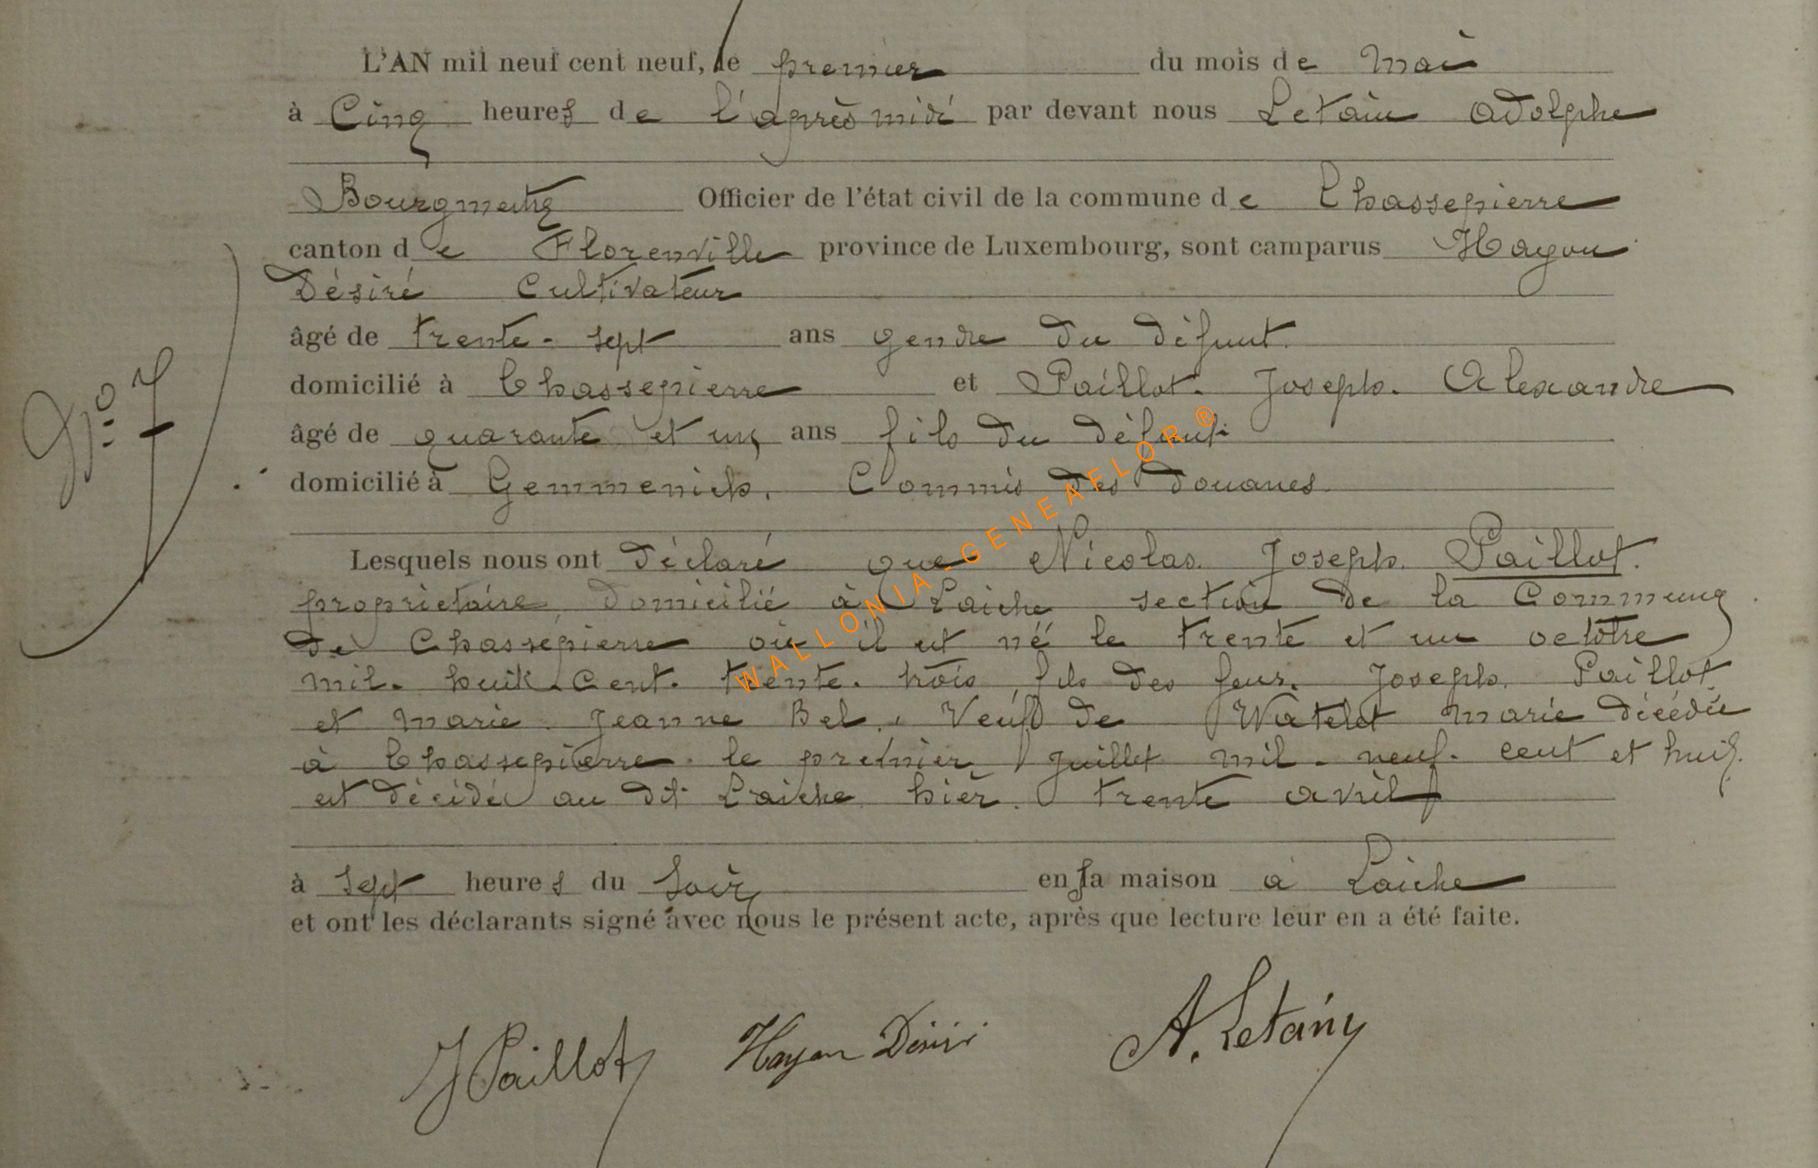 L'AN mil neuf cent neuf, le premier du mois de Mai
à Cinq heures de l'après midi par devant nous Letain Adolphe
Bourgmestre Officier de l'état civil de la commune de Chassepierre
canton de Florenville province de Luxembourg, sont camparus Hayon
Désiré Cultivateur
âgé de trente-sept ans gendre du défunt.
domicilié à Chassepierre et Paillot. Joseph. Alexandre
N° 7
âgé de quarante et un ans fils du défunt
domicilié à Gemmenich. Commis des douanes.
Lesquels nous ont déclaré que Nicolas. Joseph. Paillot.
propriétaire domicilié à Laiche section de la Commune
de Chassepierre où il est né le trente et un octobre
mil. huit. Cent. trente. trois, fils des feus. Joseph. Paillot
et Marie. Jeanne Bel, Veuf de Watelet Marie décédée
à Chassepierre le premier juillet mil. neuf. cent et huit.
est décédé au dit Laiche hier. trente avril
à sept heures du soir en sa maison à Laiche
et ont les déclarants signé avec nous le présent acte, après que lecture leur en a été faite.
J Paillot Hayon Désiré A. Letain
WALLONIA-GENEAFLOR®